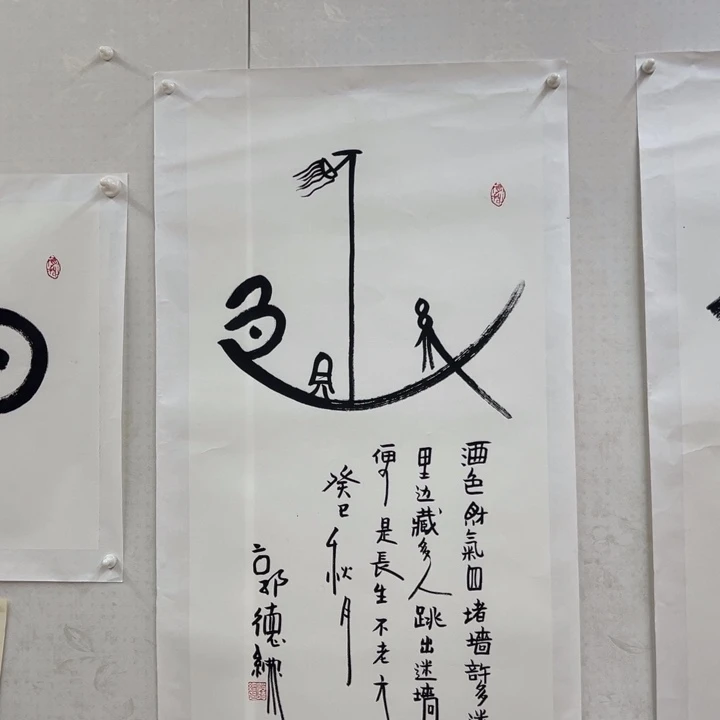 酒色財氣四堵墙許多
里边藏多人跳出迷墙
便是長生不老方
癸巳秋月
郭德綱